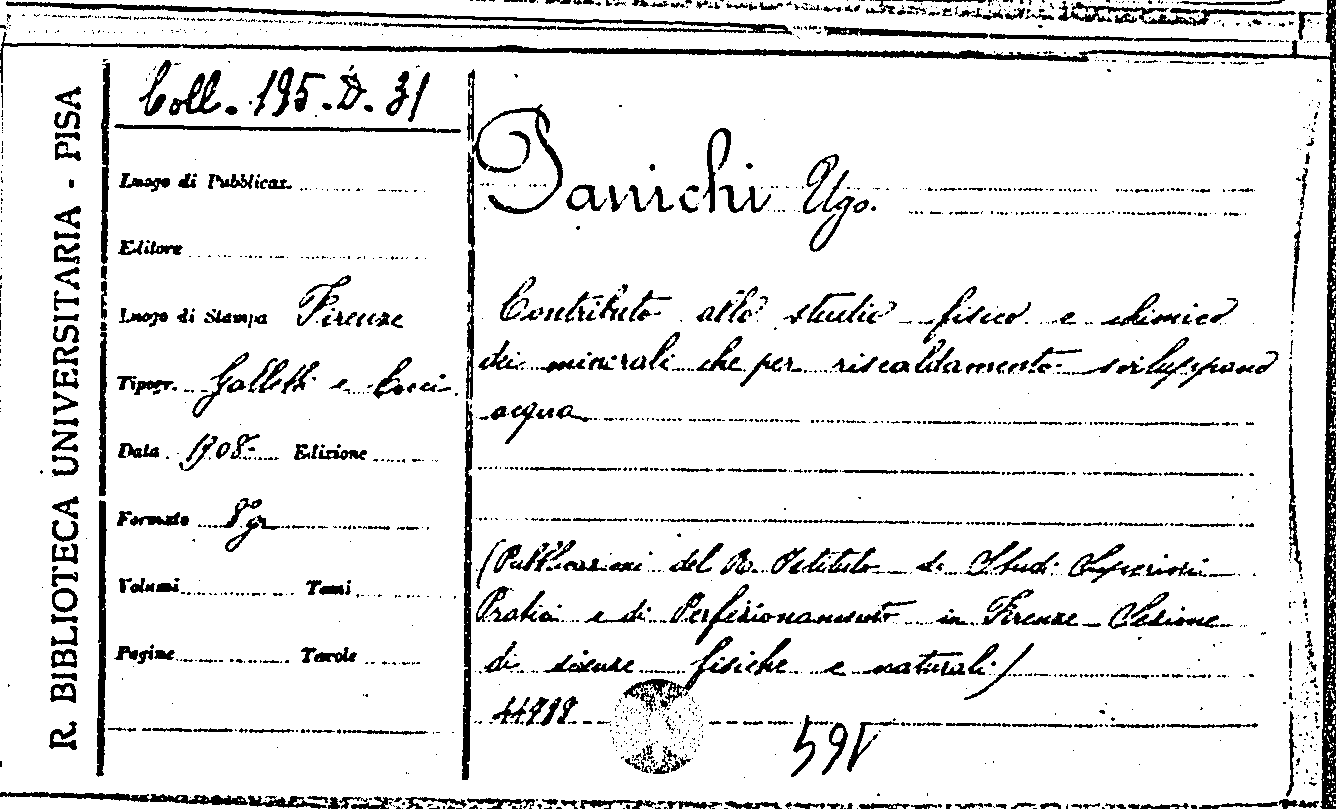 R. BIBLIOTECA UNIVERSITARIA - PISA
Coll. 195. D. 31
Luogo di Pubblicaz.
Editore
Luogo di Stampa Firenze
Tipogr. Galletti e Cocci
Data 1908 Edizione
Formato 8° gr
Volumi Tomi
Pagine Tavole
Panichi Ugo.
Contributo allo studio fisico e chimico
dei minerali che per riscaldamento sviluppano
acqua
(Pubblicazioni del R. Istituto di Studi Superiori
Pratici e di Perfezionamento in Firenze - Sezione
di scienze fisiche e naturali)